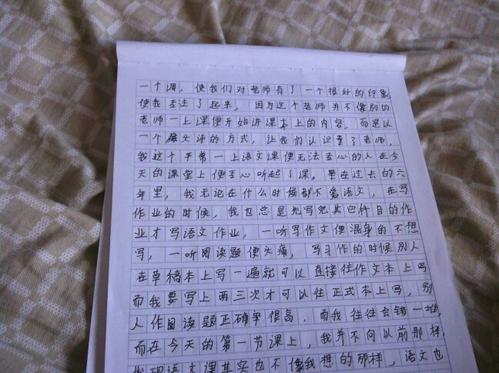 一个词，使我们对老师有了一个很好的印象，
使我关注了起来，因为这个老师并不像别的
老师一上课便开始讲课本上的内容，而是以
一个交流的方式，让我们认识了老师，
我这个平常一上语文课便无法专心的人在今
天的课堂上便专心听起了课，要在过去的六
年里，我无论在什么时候都不爱语文，在写
作业的时候，我也总是先写完其它科目的作
业才写语文作业，一听写作文便混身的不想
写，一听阅读题便头痛，写习作的时候别人
在草稿本上写一遍就可以直接往作文本上写
而我要写上两三次才可以往正式本上写，别
人作阅读题正确率很高，而我往往会错一堆，
而在今天的第一节课上，我并不向以前那样，
发现语文课其实也不像我想的那样，语文也